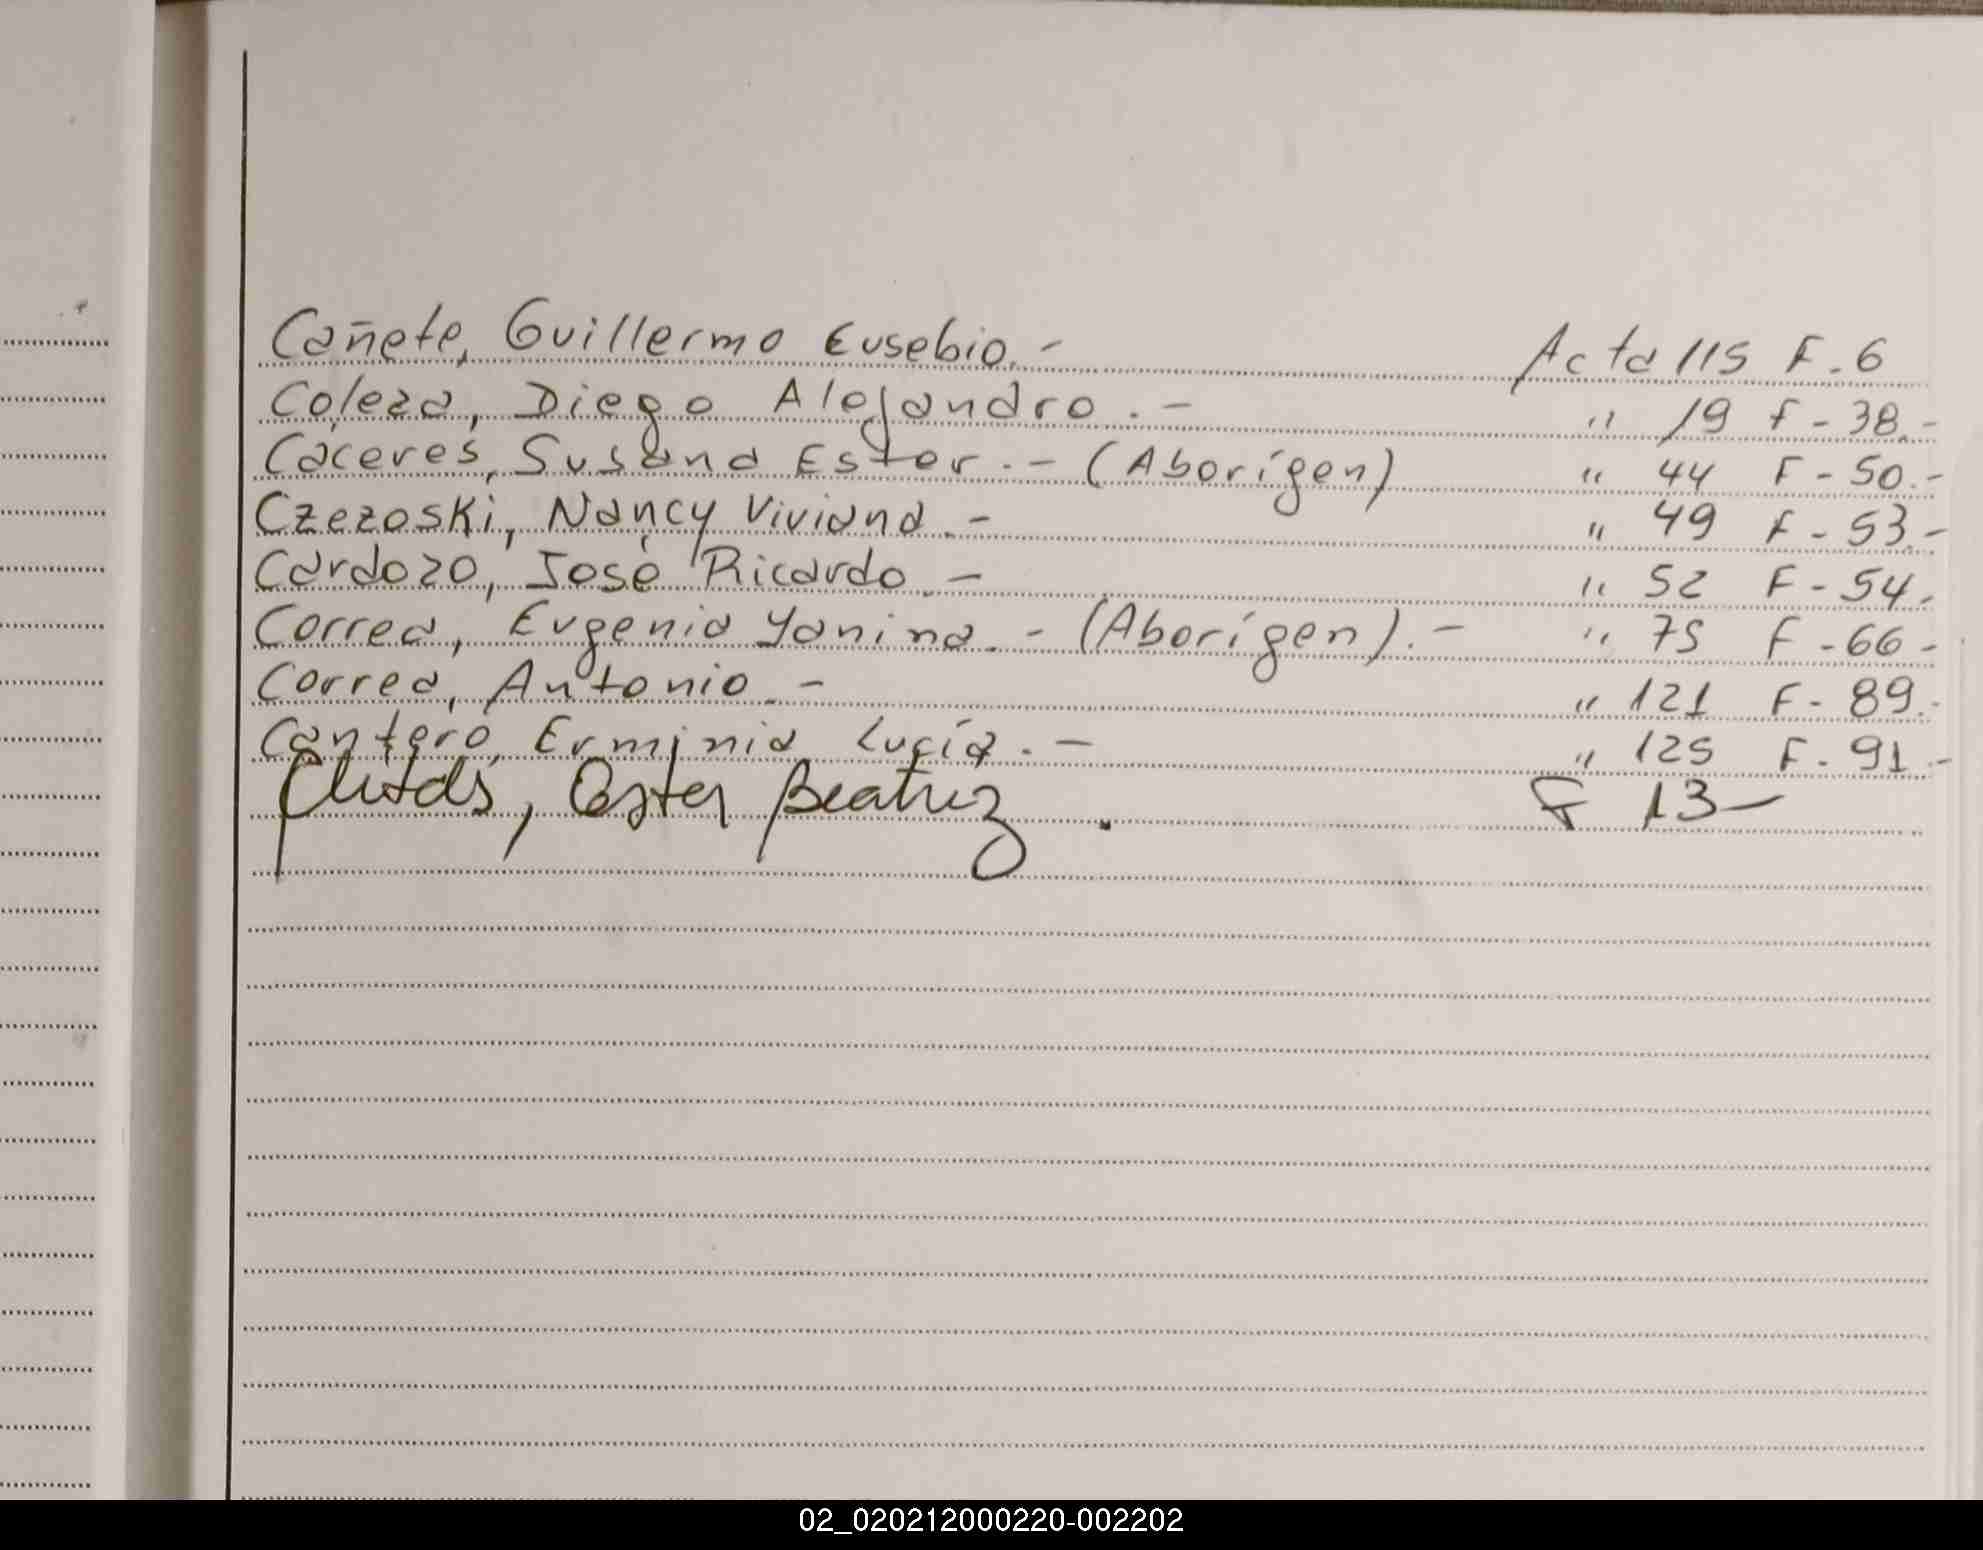 Cañete, Guillermo Eusebio.- Acta 115 F.6
Coleza, Diego Alejandro.- " 19 F-38.-
Cáceres, Susana Ester.- (Aborígen) " 44 F-50.-
Czezoski, Nancy Viviana.- " 49 F-53.-
Cardozo, José Ricardo.- " 52 F-54.
Correa, Eugenia Yanina.- (Aborígen).- " 75 F-66-
Correa, Antonio.- " 121 F-89.-
Cantero, Erminia Lucía.- " 125 F-91.-
Ester Beatriz. F 13-
02_020212000220-002202